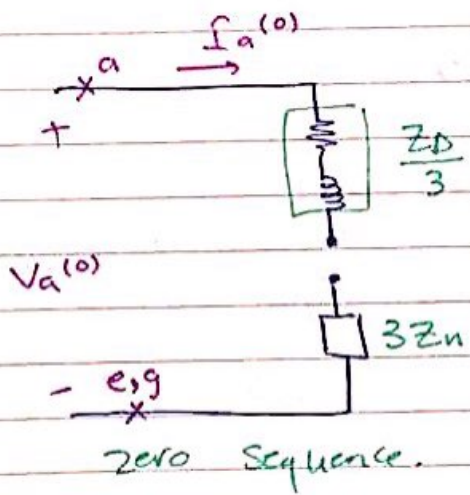 Ia(0)
a
+
ZD/3
Va(0)
3Zn
- e,g
zero Sequence.